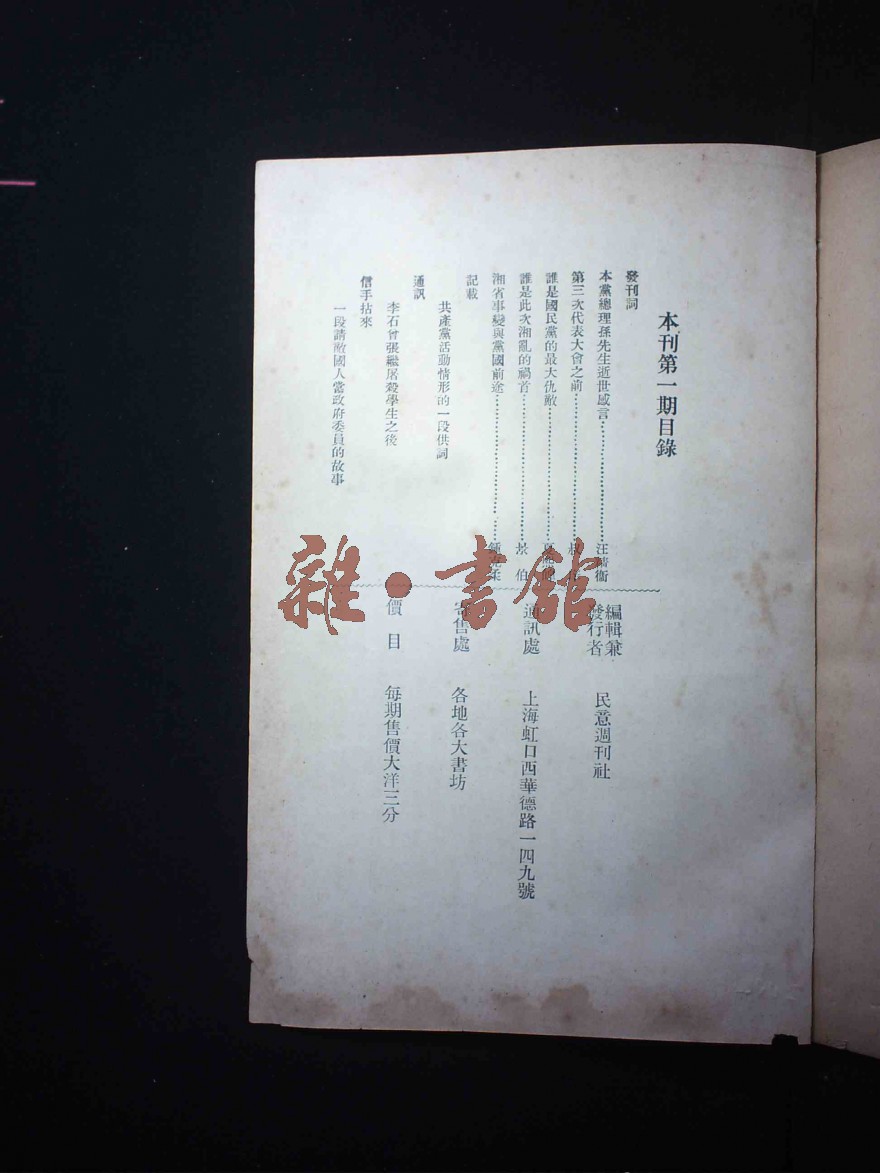 本刊第一期目錄
發刊詞
本黨總理孫先生逝世感言……汪精衛
第三次代表大會之前……
誰是國民黨的最大仇敵……
誰是此次湘亂的禍首……景 伯
湘省事變與黨國前途……鍾 柔
記載
共產黨活動情形的一段供詞
通訊
李石曾張繼屠殺學生之後
信手拈來
一段請敵國人當政府委員的故事
編輯兼發行者 民意週刊社
通訊處 上海虹口西華德路一四九號
寄售處 各地各大書坊
價目 每期售價大洋三分
雜·書館